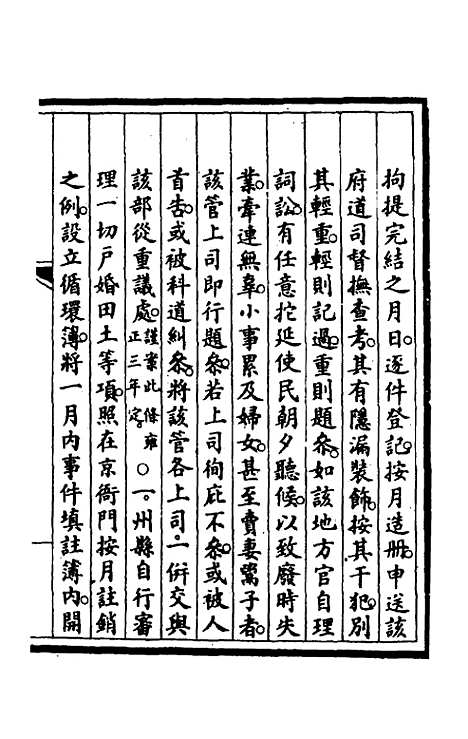 拘提完結之月日。逐件登記。按月造册。申送該
府道司督撫查考。其有隱漏裝飾。按其干犯。別
其輕重。輕則記過。重則題參。如該地方官自理
詞訟。有任意拕延使民朝夕聽候。以致廢時失
業。牽連無辜。小事累及婦女。甚至賣妻鬻子者。
該管上司即行題參。若上司徇庇不參。或被人
首告。或被科道糾參。將該管各上司。一併交與
該部從重議處。謹案此條雍正三年定。○一。州縣自行審
理一切户婚田土等項。照在京衙門按月註銷
之例。設立循環簿。將一月內事件填註簿內。開